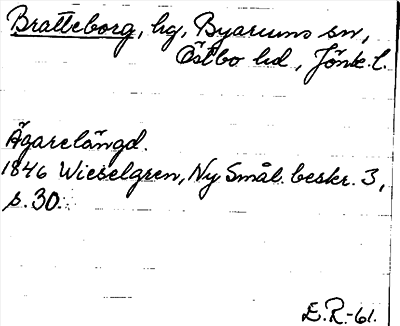 Bratteborg, hg, Byarums sn,
Östbo hd, Jönk. l.
Ägarelängd.
1846 Wieselgren, Ny Smål. beskr. 3,
s. 30.
E.R.-61.